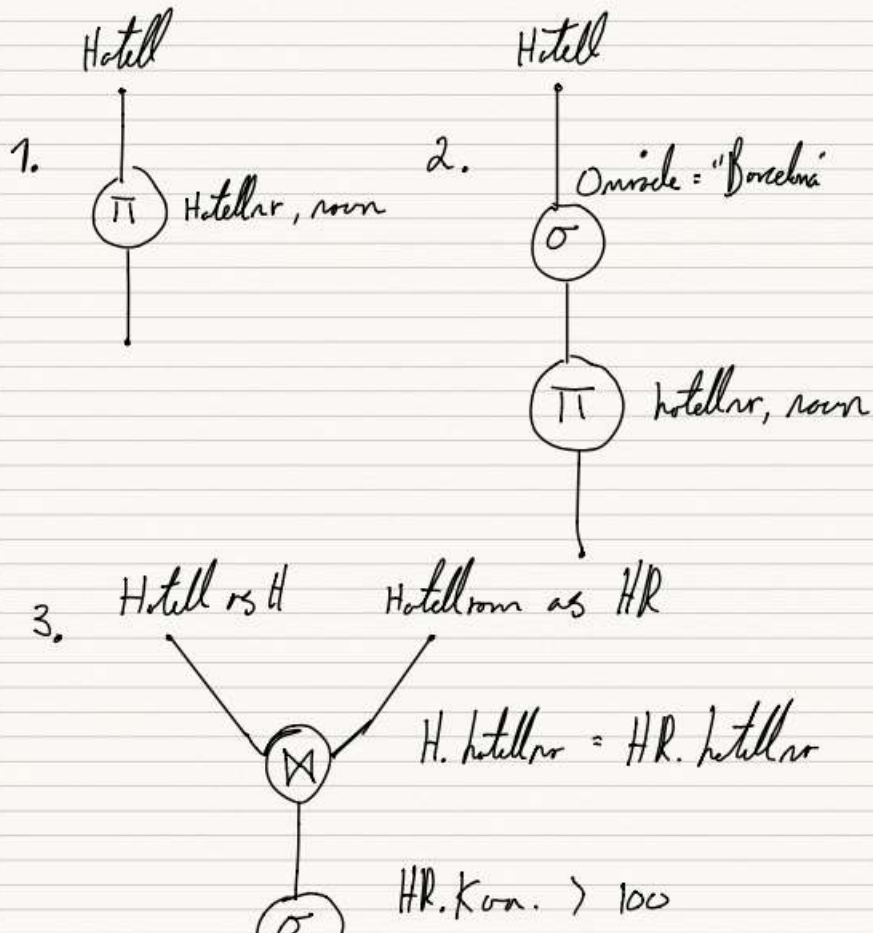 Hotell
1.
π Hotellnr, navn
2.
Hotell
Område = "Barcelona"
σ
π hotellnr, navn
3. Hotell as H Hotellrom as HR
⋈ H.hotellnr = HR.hotellnr
HR.Kan. > 100
σ